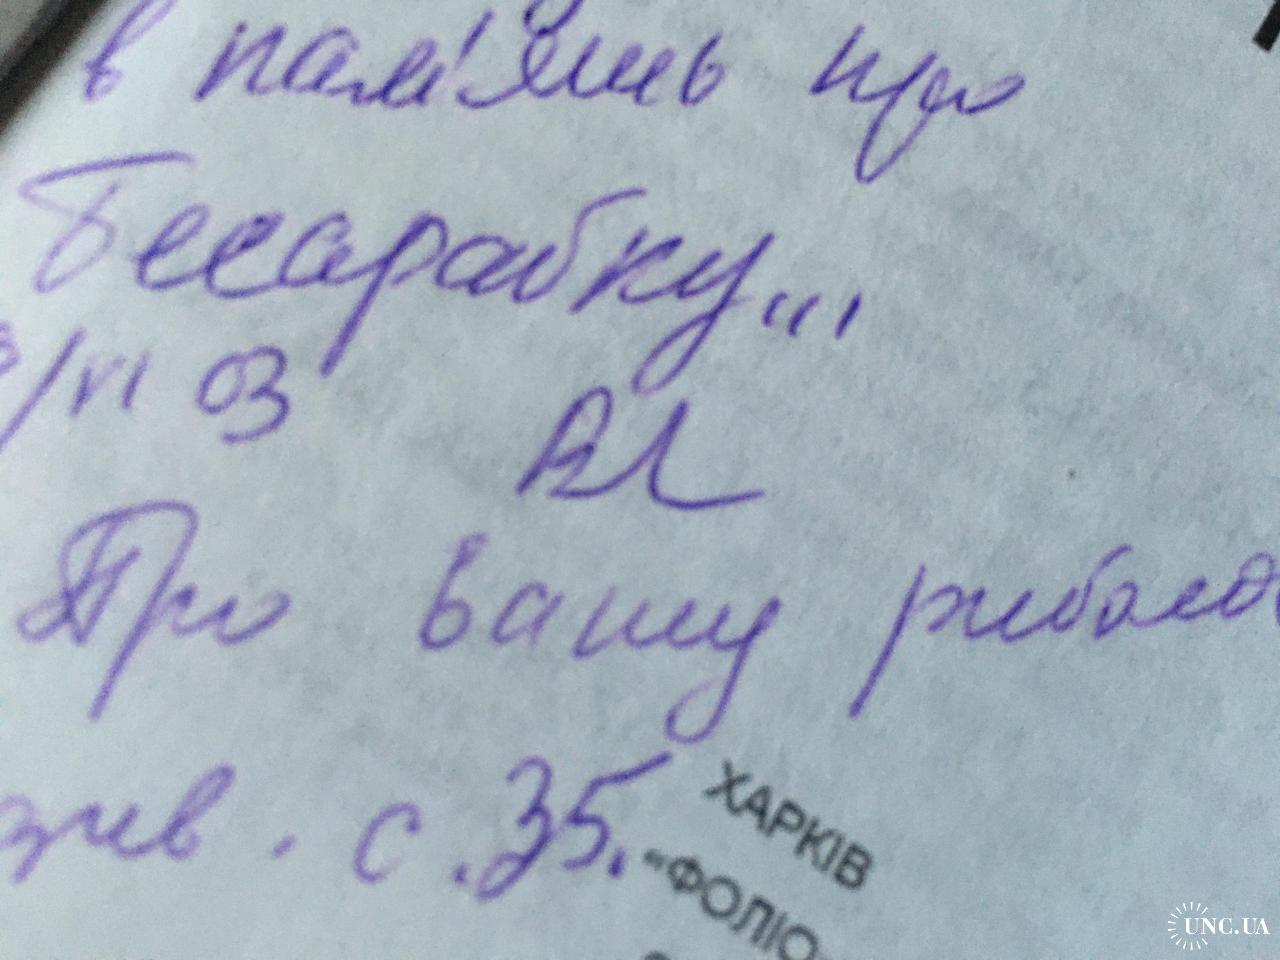 в пам'ять про
Бесарабку...
/VI 03
Про вашу
див. с. 35.
ХАРКІВ
«ФОЛІО»
UNC.UA